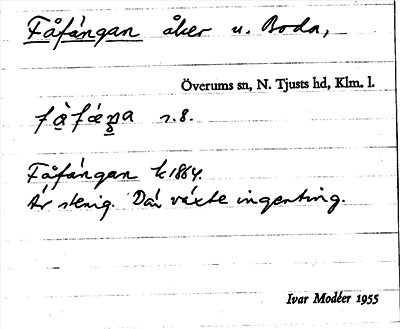 Fåfángan åker u. Boda,
Överums sn, N. Tjusts hd, Klm. l.
r. 8.
Fåfángan k 1864.
Är stenig. Där växte ingenting.
Ivar Modéer 1955